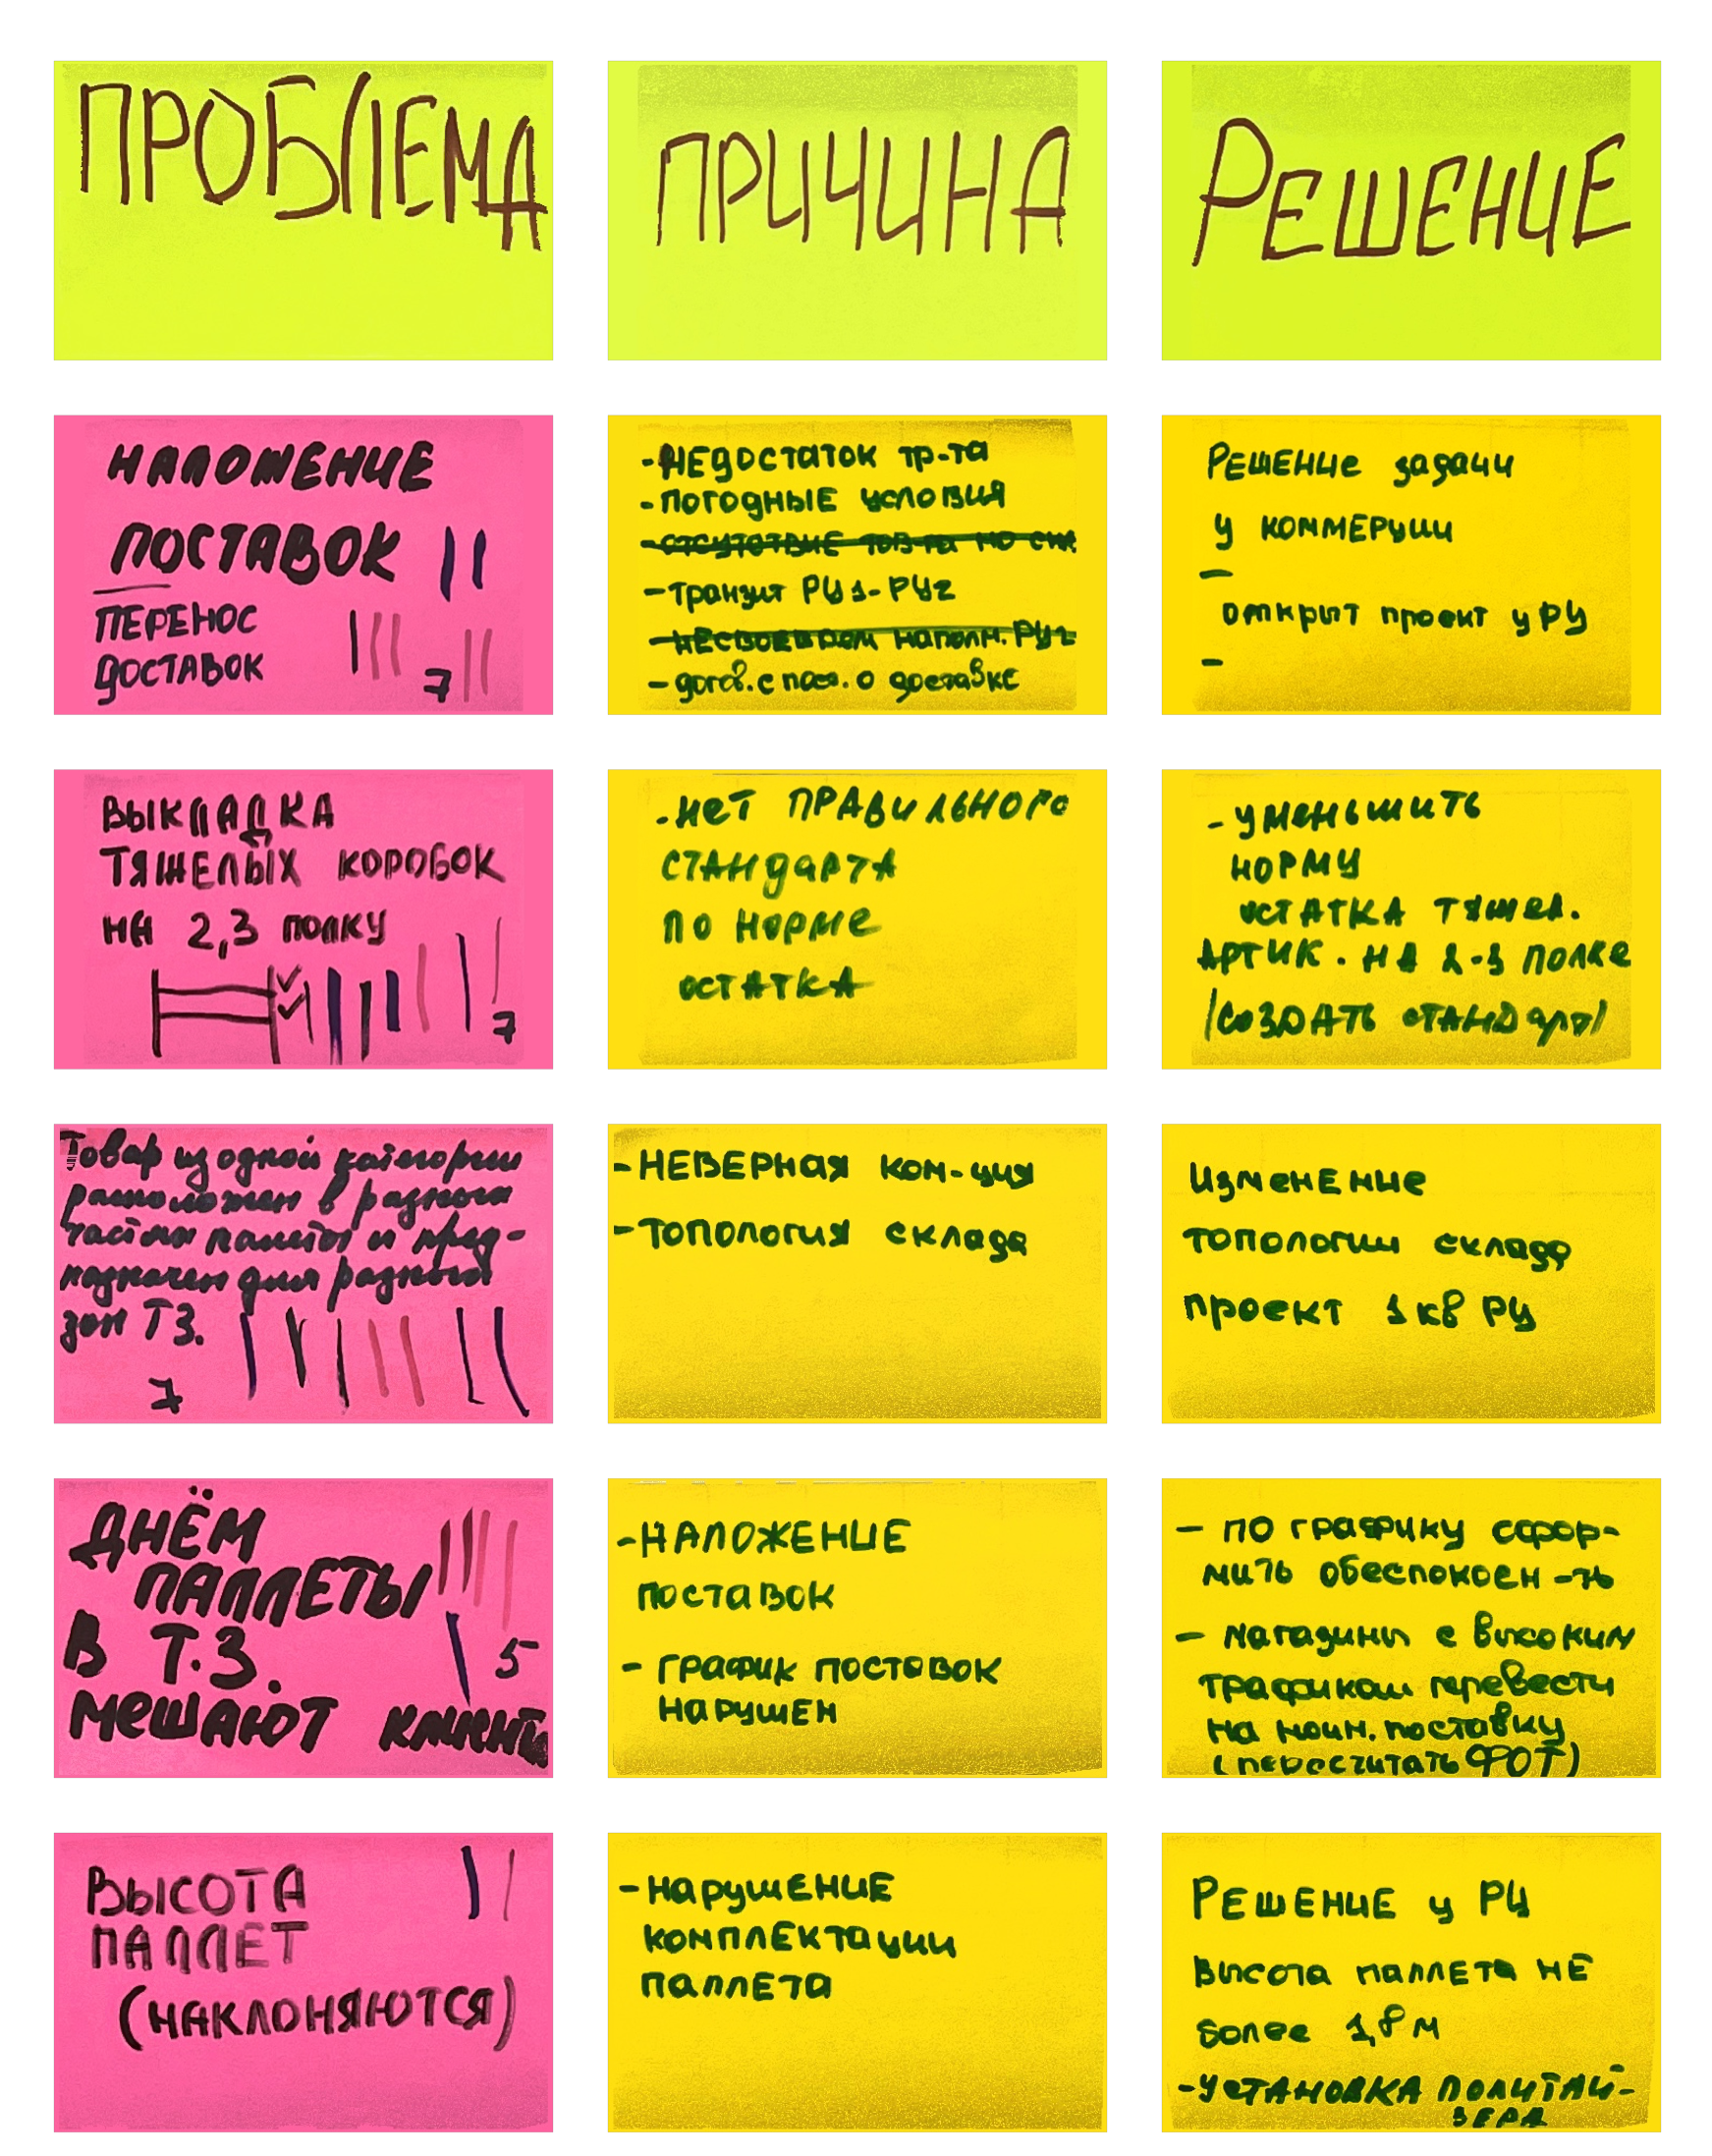 ПРОБЛЕМА
ПРИЧИНА
РЕШЕНИЕ
НАЛОЖЕНИЕ
ПОСТАВОК
ПЕРЕНОС
ДОСТАВОК 7
- НЕДОСТАТОК тр-та
- ПОГОДНЫЕ УСЛОВИЯ
- ОТСУТСТВИЕ тов-ра на
- Транзит РЦ1-РЦ2
- НЕСВОЕВРЕМ наполн. РЦ2
- догов. с пост. о доставке
РЕШЕНИЕ задачи
у КОММЕРЦИИ
-
открыт проект у РЦ
-
ВЫКЛАДКА
ТЯЖЕЛЫХ КОРОБОК
НА 2,3 полку
7
- НЕТ ПРАВИЛЬНОГО
СТАНДАРТА
ПО НОРМЕ
ОСТАТКА
- УМЕНЬШИТЬ
НОРМУ
ОСТАТКА ТЯЖЕЛ.
АРТИК. НА 2-3 ПОЛКЕ
/СОЗДАТЬ СТАНДАРТ/
Товар из одной категории
расположен в разных
частях палеты и пред-
назначен для разных
зон ТЗ.
7
- НЕВЕРНАЯ ком-ция
- ТОПОЛОГИЯ склада
ИзмЕНЕНИе
топологии склада
проект 1 кв РЦ
ДНЁМ
ПАЛЛЕТЫ
В Т.З. 5
МЕШАЮТ
- НАЛОЖЕНИЕ
ПОСТАВОК
- ГРАФИК ПОСТАВОК
НАРУШЕН
- по графику сфор-
мить обеспокоен-ть
- магазины с высоким
трафиком перевести
на поставку
(пересчитать ФОТ)
ВЫСОТА
ПАЛЛЕТ
(НАКЛОНЯЮТСЯ)
- НАРУШЕНИЕ
КОМПЛЕКТАЦИИ
ПАЛЛЕТА
РЕШЕНИЕ у РЦ
Высота паллета НЕ
более 1,8 м
- УСТАНОВКА ПОЛИТАЙ-
ЗЕРА